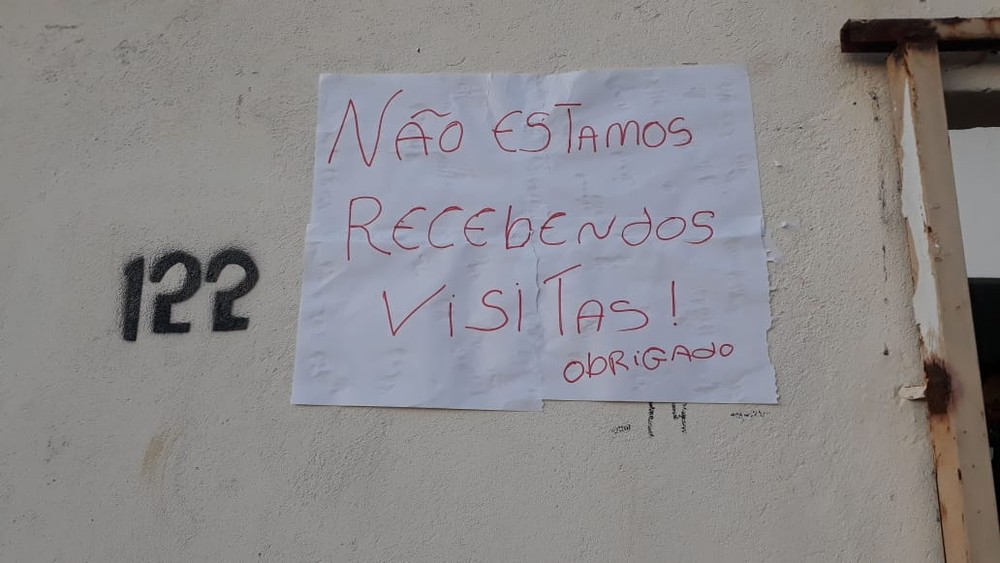 NÃO ESTAMOS
RECEbENdOS
ViSiTAS!
ObRiGAdO
122